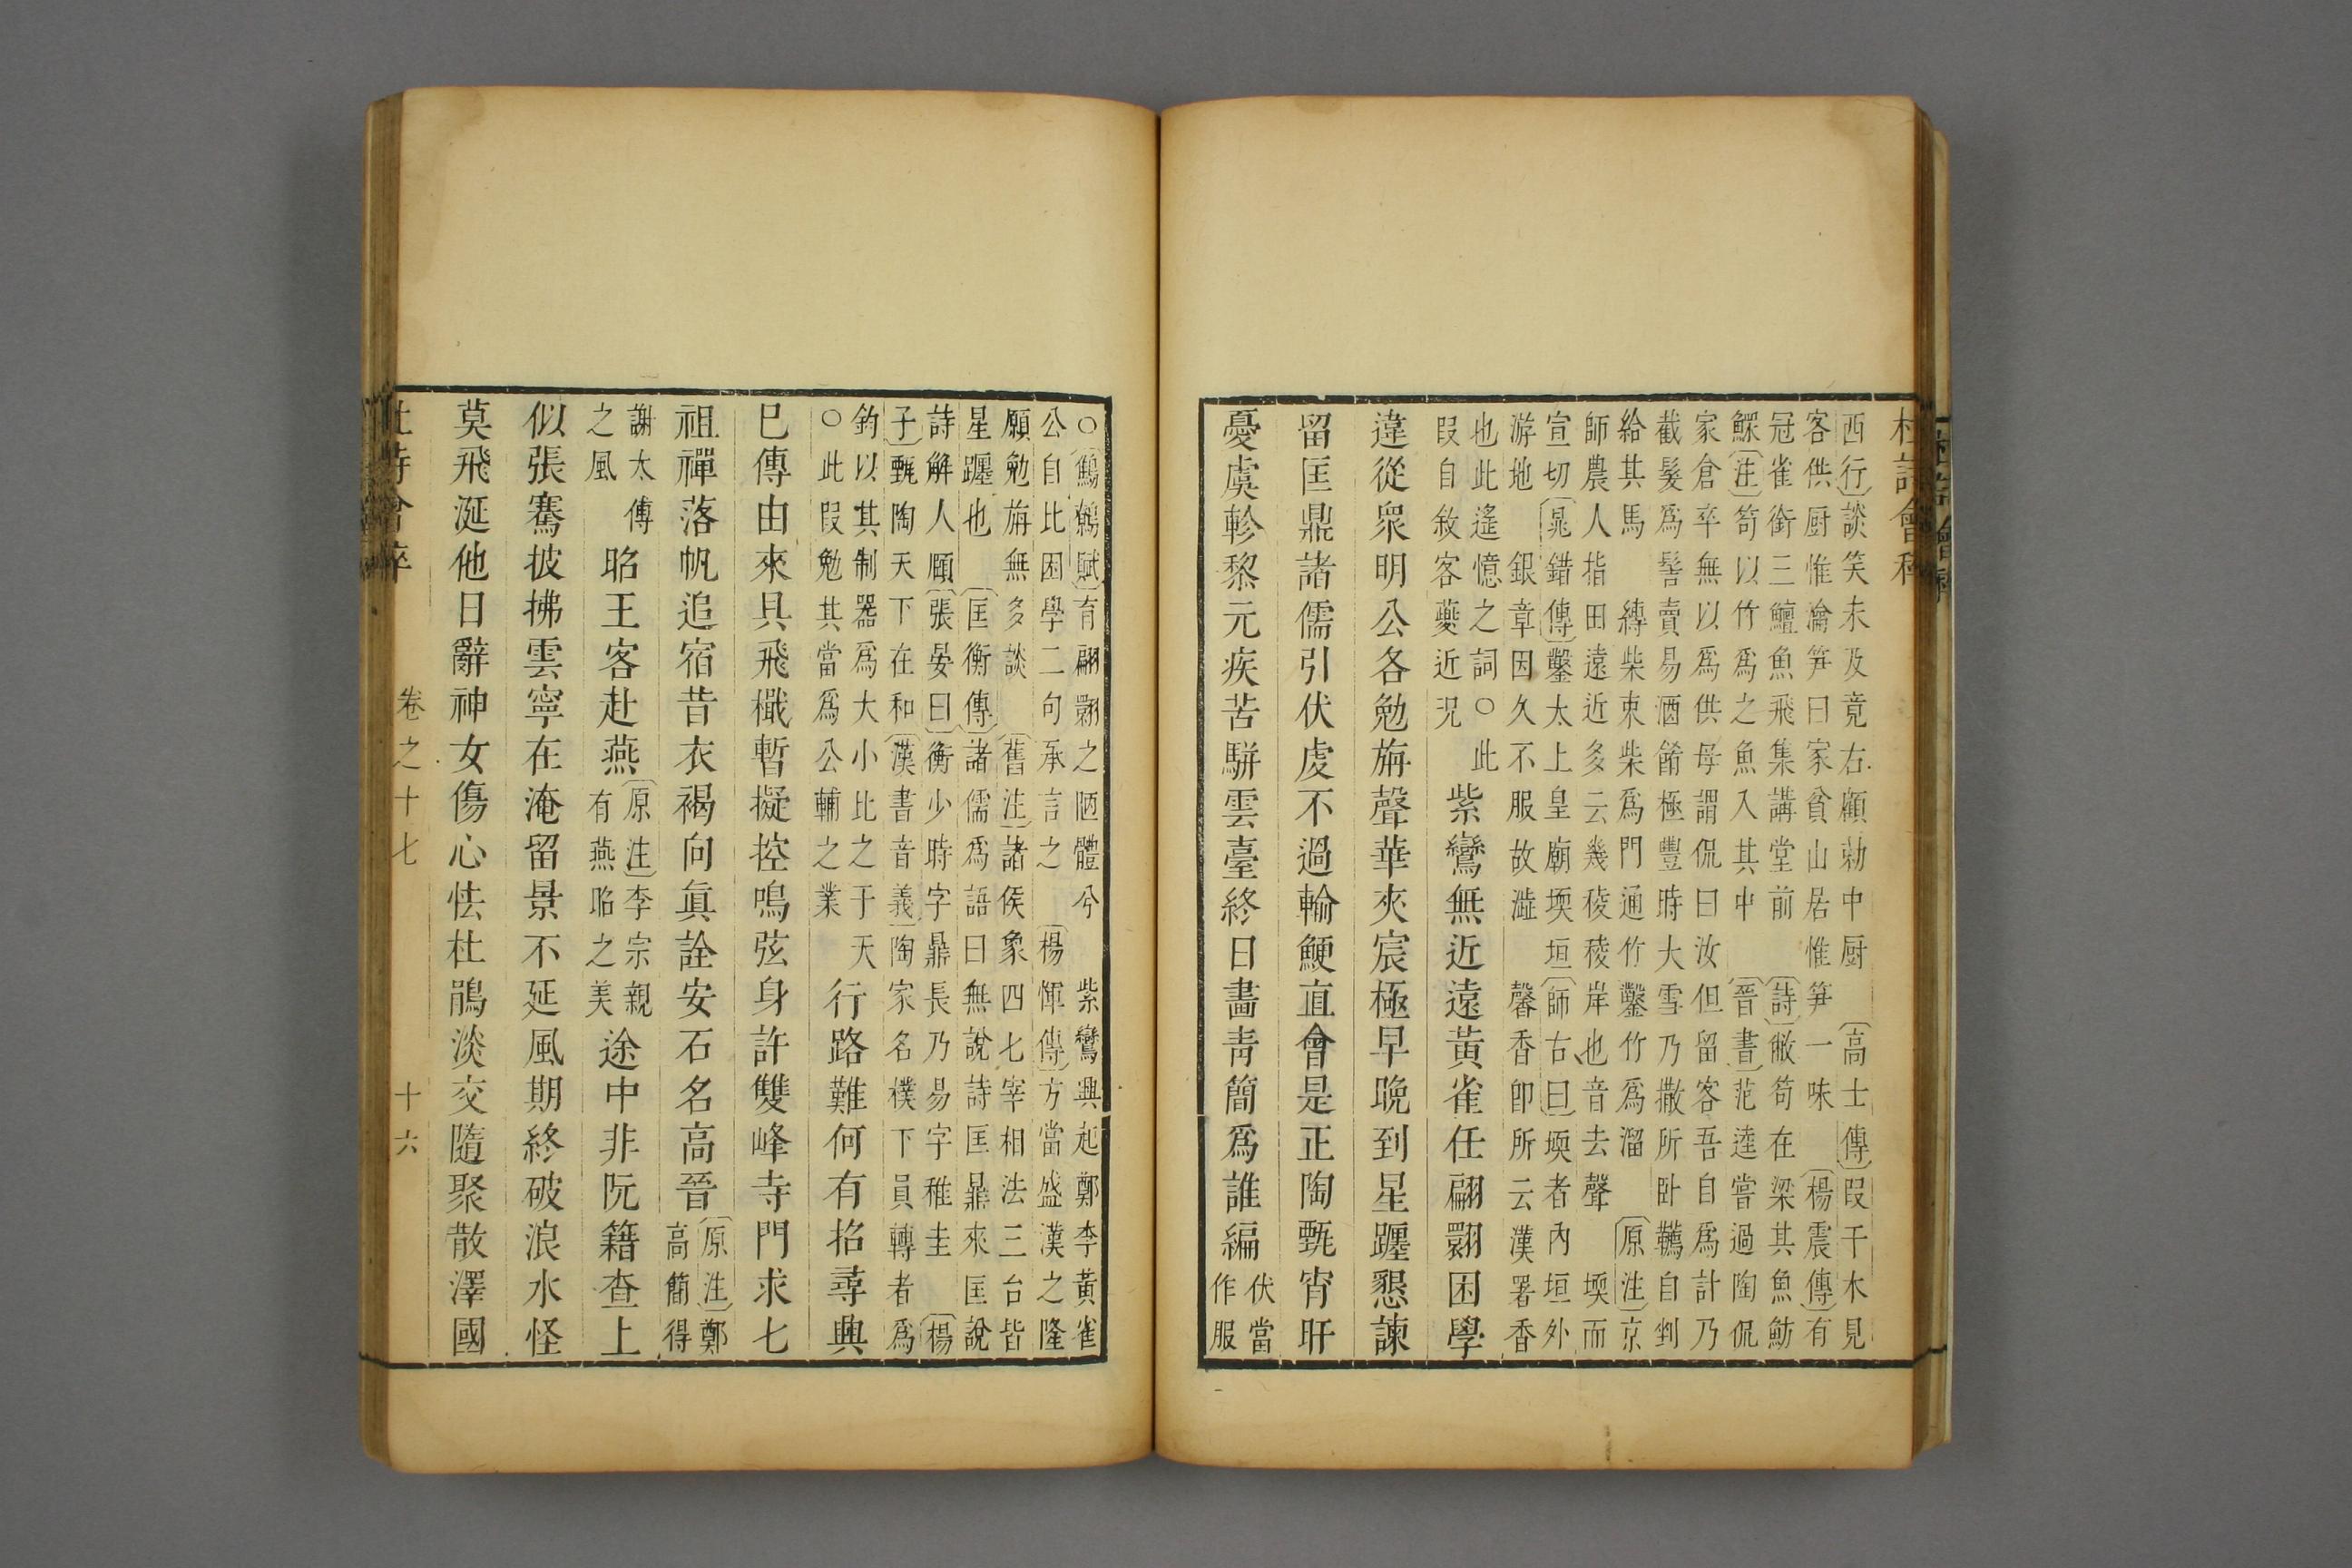 杜詩會稡
西行〕談笑未及竟右顧勅中厨 〔高士傳〕叚干木見
客供厨惟瀹笋曰家貧山居惟笋一味 〔楊震傳〕有
冠雀銜三鱣魚飛集講堂前 〔詩〕敝笱在梁其魚魴
鰥〔注〕笱以竹爲之魚入其中 〔晉書〕范逵嘗過陶侃
家倉卒無以爲供母謂侃曰汝但留客吾自爲計乃
截髮爲髻賣易酒餚極豐時大雪乃撤所卧韀自剉
給其馬 縛柴束柴爲門通竹鑿竹爲溜 〔原注〕京
師農人指田遠近多云幾稜稜岸也音去聲 堧而
宣切〔晁錯傳〕鑿太上皇廟堧垣〔師古曰〕堧者內垣外
游地 銀章因久不服故澁 馨香即所云漢署香
也此遙憶之詞○此
叚自敘客夔近況
紫鸞無近遠黃雀任翩翾困學
違從衆明公各勉旃聲華夾宸極早晚到星躔懇諫
留匡鼎諸儒引伏虔不過輸鯁直會是正陶甄宵旰
憂虞軫黎元疾苦駢雲臺終日畫青簡爲誰編
伏當
作服
○〔鷦鷯賦〕育翩翾之陋體兮 紫鸞興起鄭李黃雀
公自比困學二句承言之 〔楊惲傳〕方當盛漢之隆
願勉旃無多談 〔舊注〕諸侯象四七宰相法三台皆
星躔也 〔匡衡傳〕諸儒爲語曰無說詩匡鼎來匡說
詩解人頤〔張晏曰〕衡少時字鼎長乃易字稚圭 〔楊
子〕甄陶天下在和〔漢書音義〕陶家名模下員轉者爲
鈞以其制器爲大小比之于天
○此叚勉其當爲公輔之業
行路難何有招尋興
已傳由來具飛檝暫擬控鳴弦身許雙峰寺門求七
祖禪落帆追宿昔衣褐向眞詮安石名高晉
〔原注〕鄭
高簡得
謝太傅
之風
昭王客赴燕
〔原注〕李宗親
有燕昭之美
途中非阮籍查上
似張騫披拂雲寧在淹留景不延風期終破浪水怪
莫飛涎他日辭神女傷心怯杜鵑淡交隨聚散澤國
杜詩會稡 卷之十七 十六